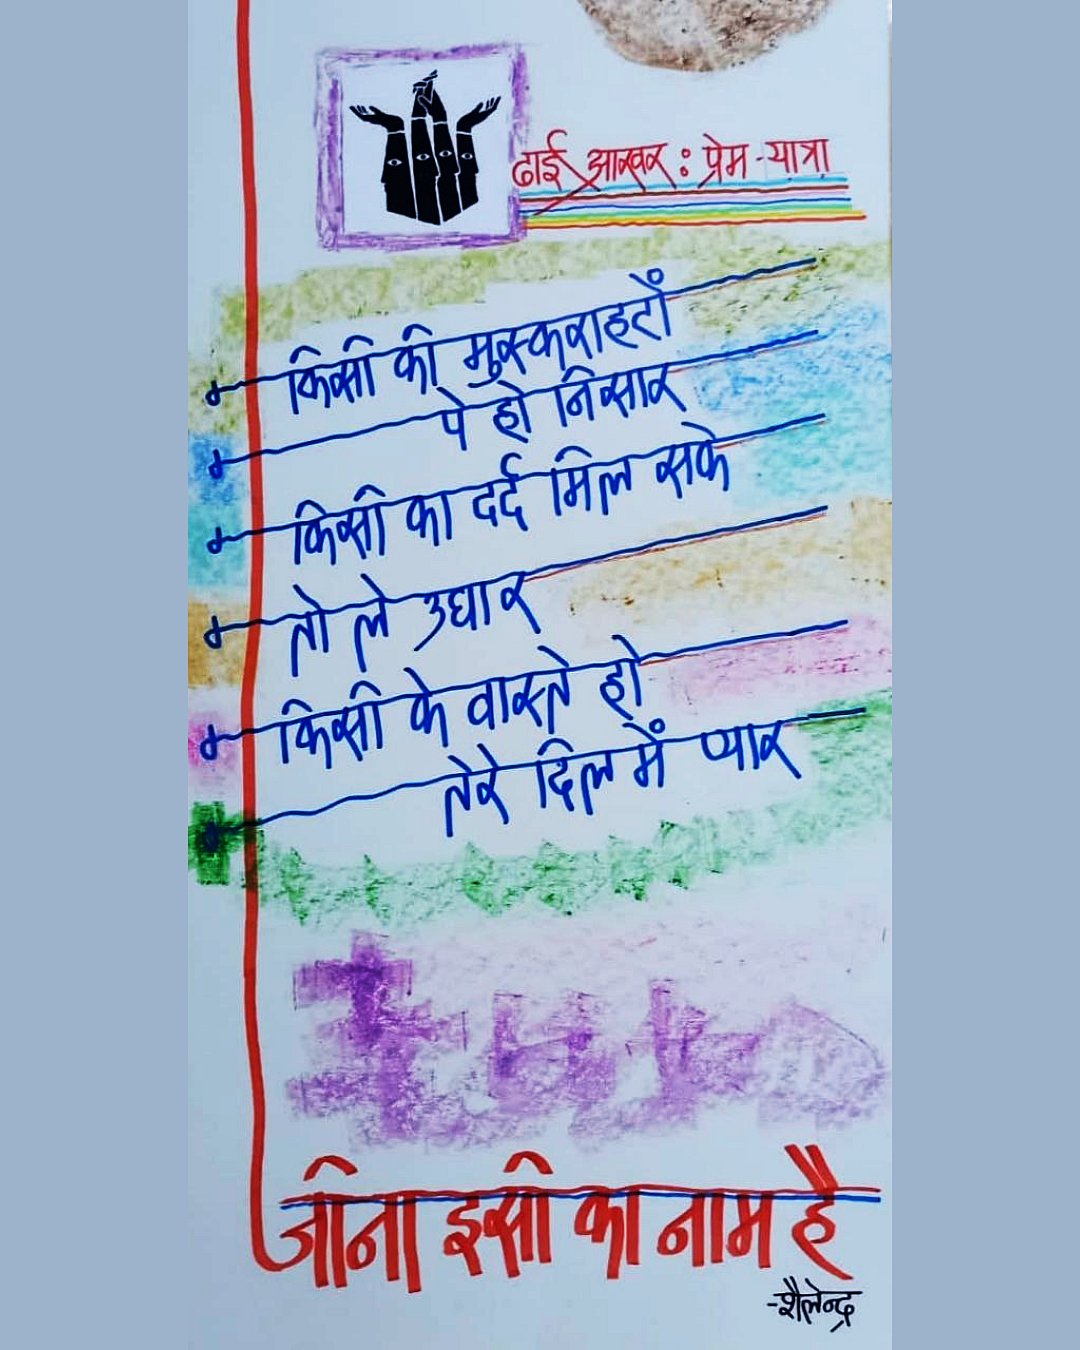 ढाई आखर : प्रेम-यात्रा
किसी की मुस्कराहटों
पे हो निसार
किसी का दर्द मिल सके
तो ले उधार
किसी के वास्ते हो
तेरे दिल में प्यार
जीना इसी का नाम है
-शैलेन्द्र